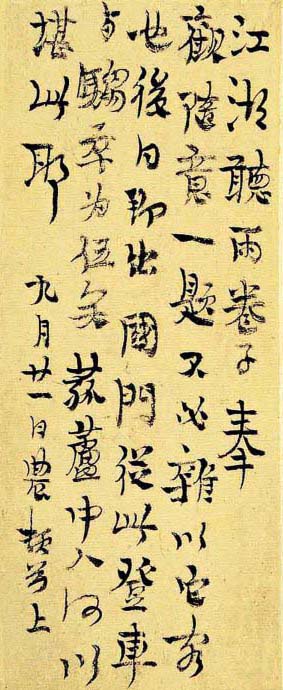 江湖聽雨卷子奉
觀隨意一題不必雜以它客
也後日即出國門從此登車
与騶卒為伍矣菰蘆中人何以
堪此耶 九月廿一日農頓首上